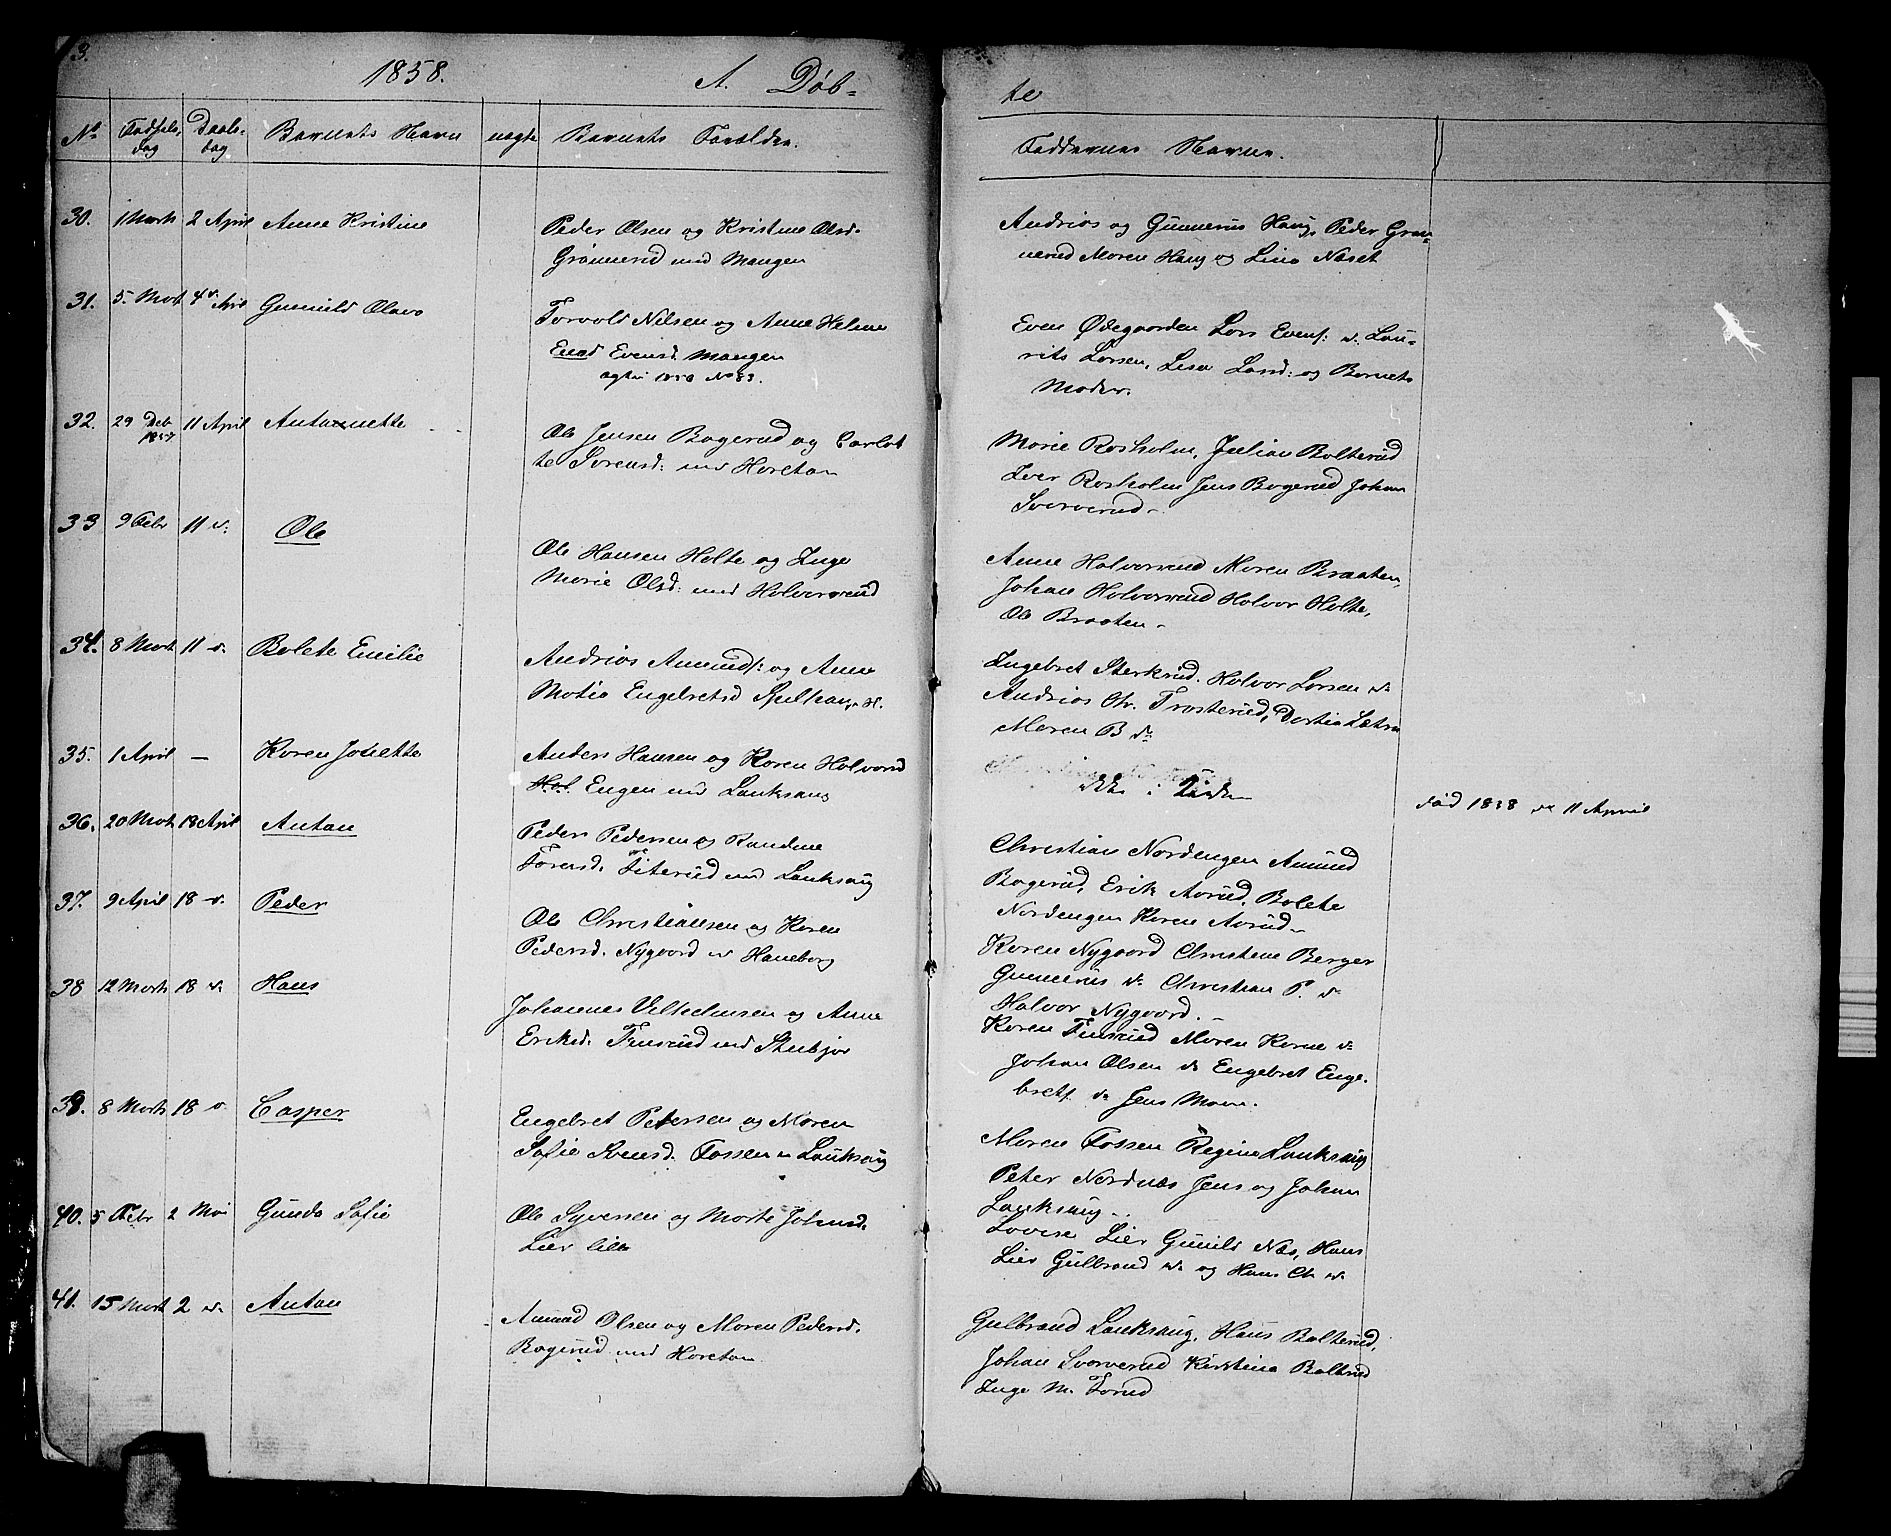 3.
1858. A. Døb-
te
No Fødsels dag Daabs dag Barnets Navn uægte Barnets Forældre. Faddernes Navne.
30. 1 Marts 2 April Anne Kristine
Peder Olsen og Kristine Olsd.
Grønnerud ved Mangen
Andrias og Gunnerus Haug, Peder Grøn-
nerud Maren Haug og Lina Næset
31. 5. Mart 4de April Gunnild Olava
Torvald Nilsen og Anne Helene
Evensd. Mangen
No 83.
Even Ødegaarden Lars Evens: do. Lau-
rits Larsen, Lisa Lund: og Barnets
Moder.
32. 29 Deb 1857 11 April Antonette
Ole Jensen Bogerud og Carlot
te Sørensd: ved Horeton
Marie Rosholm, Julian Bolterud
Iver Rosholm Jens Bogerud Johan
Svarverud
33 9 Febr 11 do. Ole
Ole Hansen Holte og Inge
Marie Olsd: ved Halvorsrud
Anne Halvorsrud Maren Braaten,
Johan Halvorsrud Halvor Holte,
Ole Braaten
34. 8 Mart 11 do. Bolete Emilie
Andrias Amunds: og Anne
Matia Engebretsd
Ingebret Sterkrud. Halvor Larsen do
Andrias Chr. Trosterud, Dortia
Maren B do
35. 1 April — Karen Josette
Anders Hansen og Karen Halvorsd
Hol Engen ved Lauksaug
ikke i
Fød 1858 11 April
36. 20 Mart 18 April Anton
Peder Pedersen og Randine
Torersd. Titerud ved Lauksaug
Christian Nordengen Amund
Bogerud, Erik Aarud, Bolete
Nordengen Karen Aarud
37. 9 April 18 do. Peder
Ole Christiansen og Karen
Pedersd. Nygaard v Haneborg
Karen Nygaard Christene Berger
Gunnerus do Christian P. do
Halvor Nygaard.
38 12 Marts 18 do. Hans
Johannes Vilhelmsen og Anne
Eriksd. Finsrud ved Stenbjør
Karen Finsrud Maren Korne do
Johan Olsen do Engebret Enge-
brets. do Jens Moen.
39. 8 Marts 18 do. Casper
Engebret Petersen og Maren
Sofie Svensd. Fossen v Lauksaug
Maren Fossen Regine Lauksaug
Peter Nordnæs Jens og Johan
Lauksaug
40. 5 Febr 2 Mai Gunda Sofie
Ole Syversen og Marte Johnsd.
Lier lille
Lovise Lier Gunild Næs, Hans
Lier Gulbrand do. og Hans Ch do
41. 15 Mart 2 do. Anton
Amund Olsen og Maren Pedersd.
Bogerud ved Horeton
Gulbrand Lauksaug, Hans Bolterud,
Johan Svarverud Kirstine Bolterud
Inge M. Torud